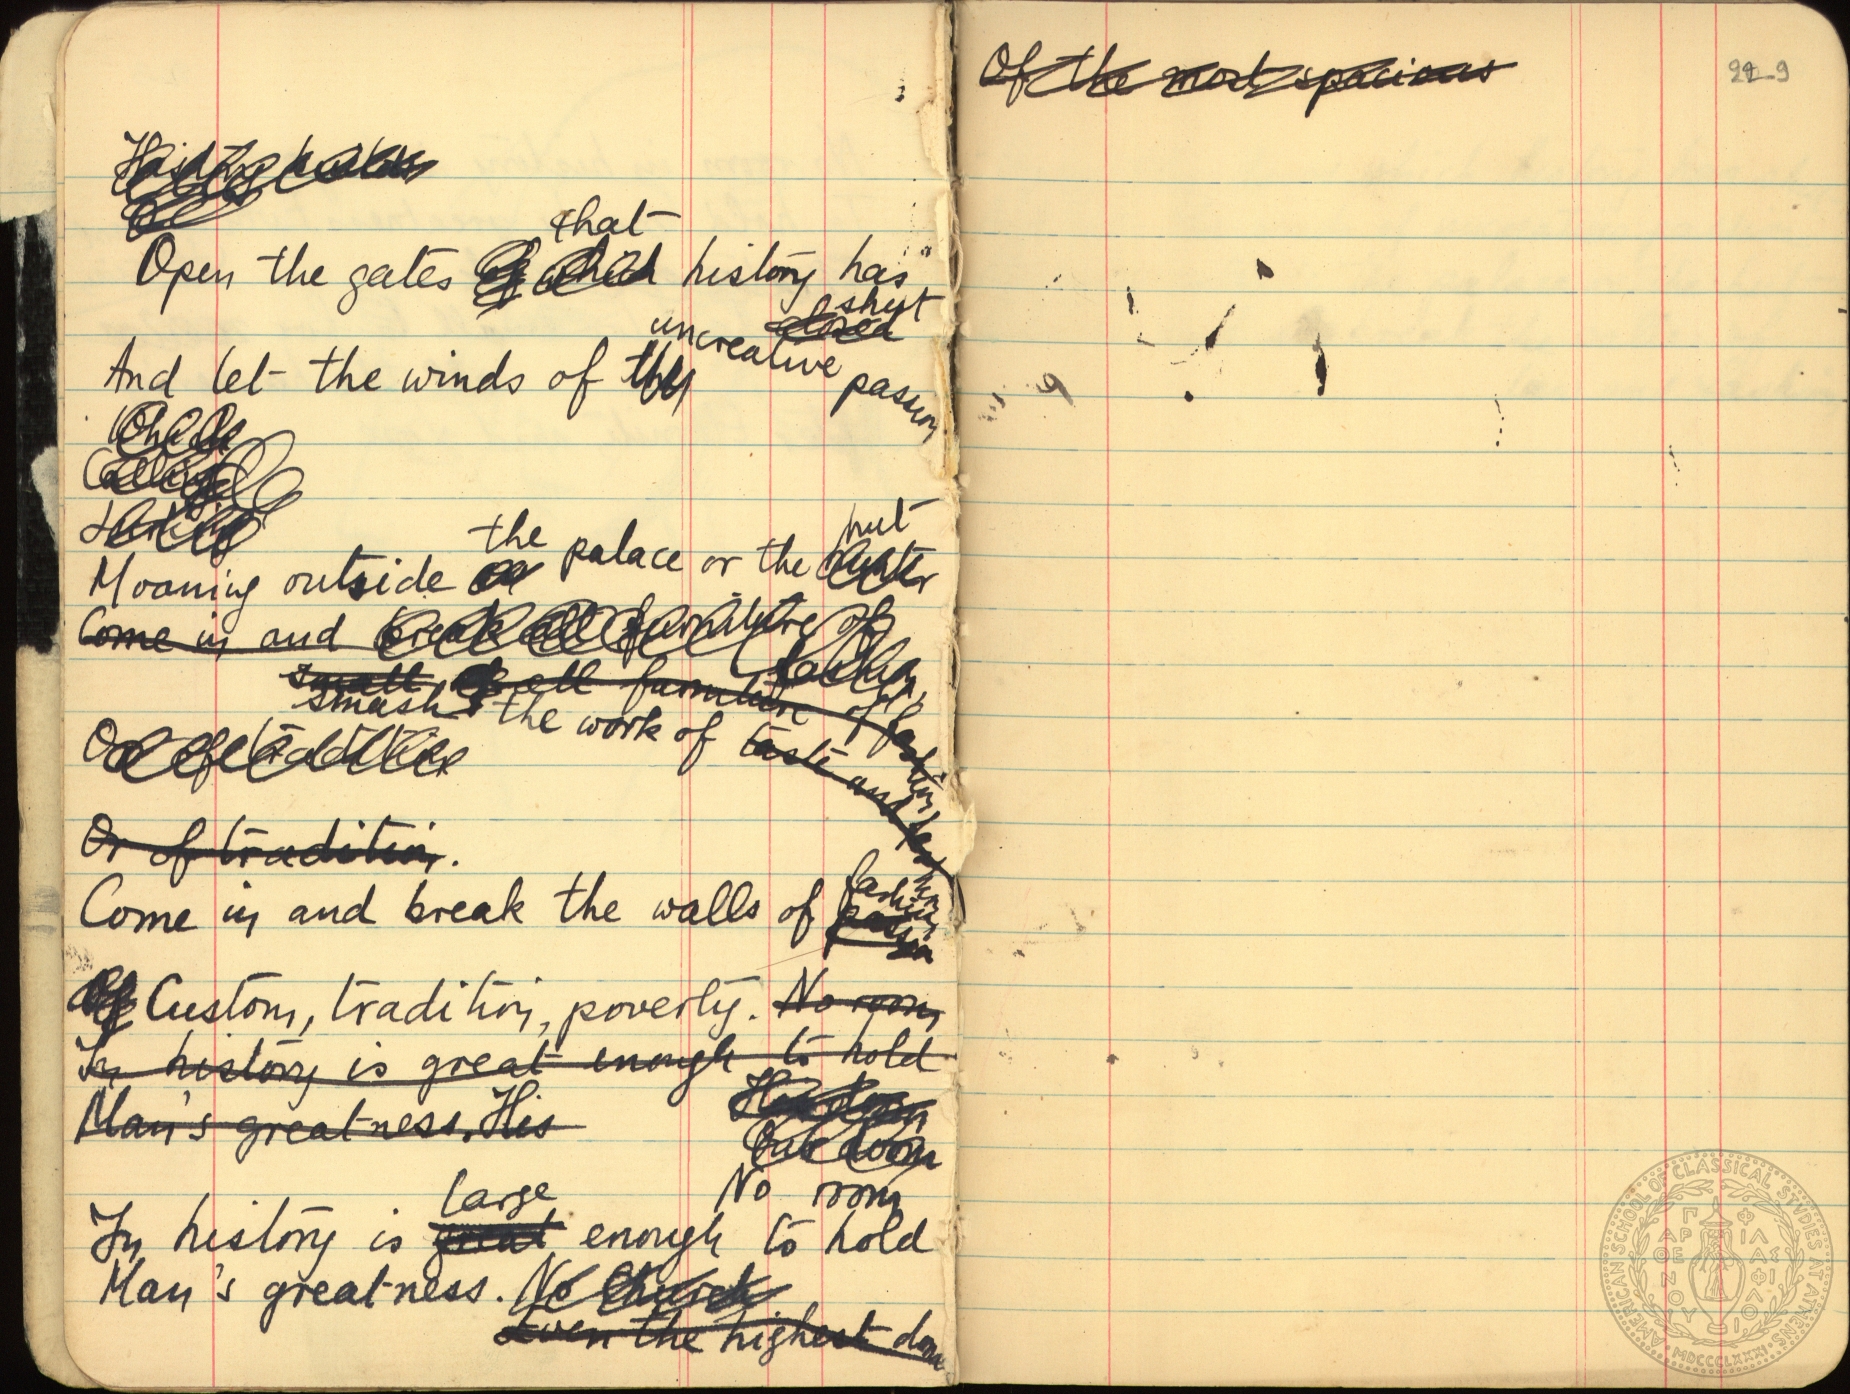 that
Open the gates of which history has
shut
closed
uncreative
And let the winds of passion
the hut
Moaning outside palace or the
Come in and break all furniture of
fashion,
small, all furniture of fashion
smash the work of taste and
Or of tradition
Or of tradition.
Come in and break the walls of fashion
passion
Of Custom, tradition, poverty. No room
In history is great enough to hold
Man's greatness. His
No room
large
In history is great enough to hold
Man's greatness. No church
Even the highest dome
Of the most spacious
AMERICAN SCHOOL OF CLASSICAL STUDIES AT ATHENS
MDCCCLXXXI